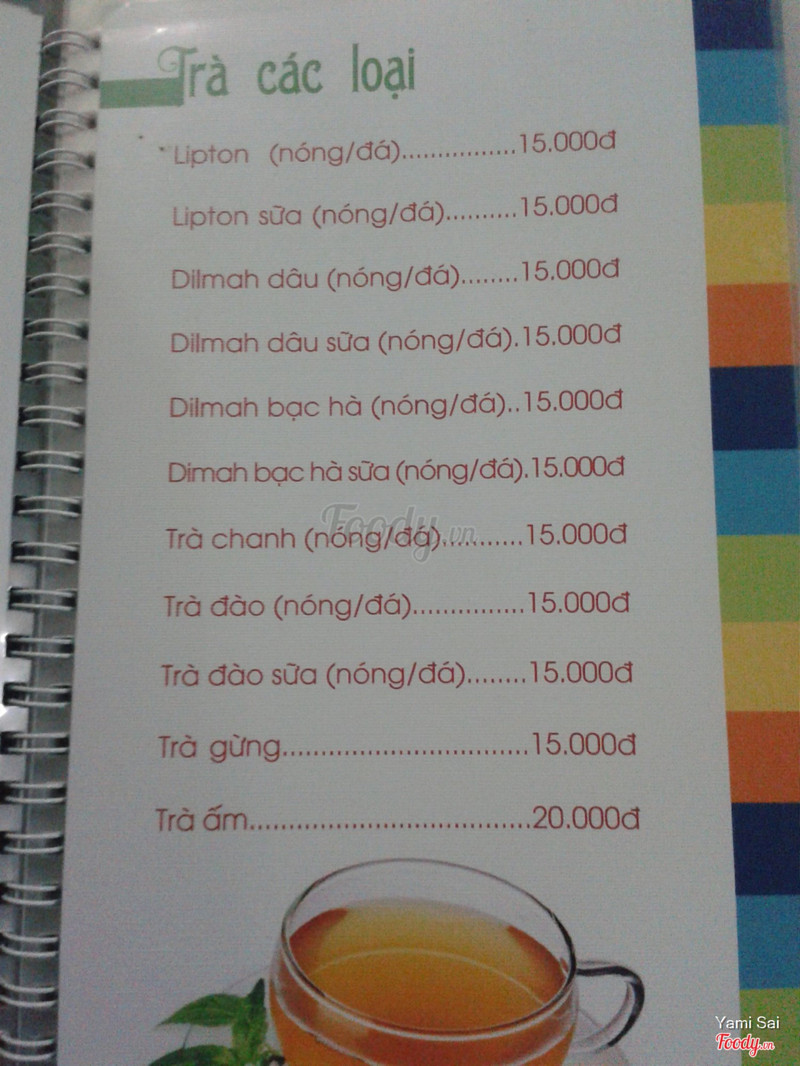 Trà các loại
Lipton (nóng/đá)................15.000đ
Lipton sữa (nóng/đá)..........15.000đ
Dilmah dâu (nóng/đá)........15.000đ
Dilmah dâu sữa (nóng/đá).15.000đ
Dilmah bạc hà (nóng/đá)..15.000đ
Dimah bạc hà sữa (nóng/đá).15.000đ
Foody.vn
Trà chanh (nóng/đá)...........15.000đ
Trà đào (nóng/đá)...............15.000đ
Trà đào sữa (nóng/đá)........15.000đ
Trà gừng................................15.000đ
Trà ấm....................................20.000đ
Yami Sai
Foody.vn